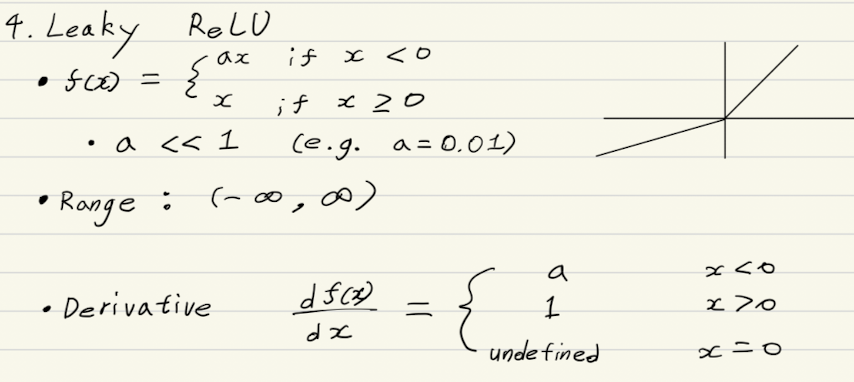 4. Leaky ReLU
• f(x) = { ax if x < 0
x if x ≥ 0
• a << 1 (e.g. a = 0.01)
• Range : (-∞, ∞)
• Derivative df(x)/dx = { a x < 0
1 x > 0
undefined x = 0